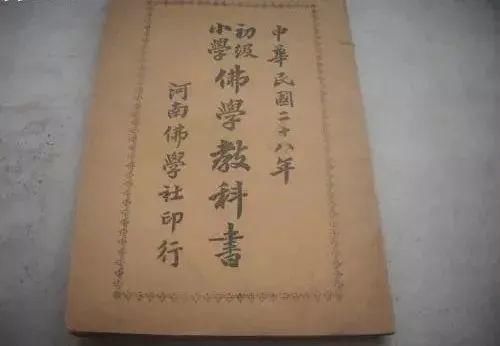 中華民國二十八年
初級
小學
佛學教科書
河南佛學社印行